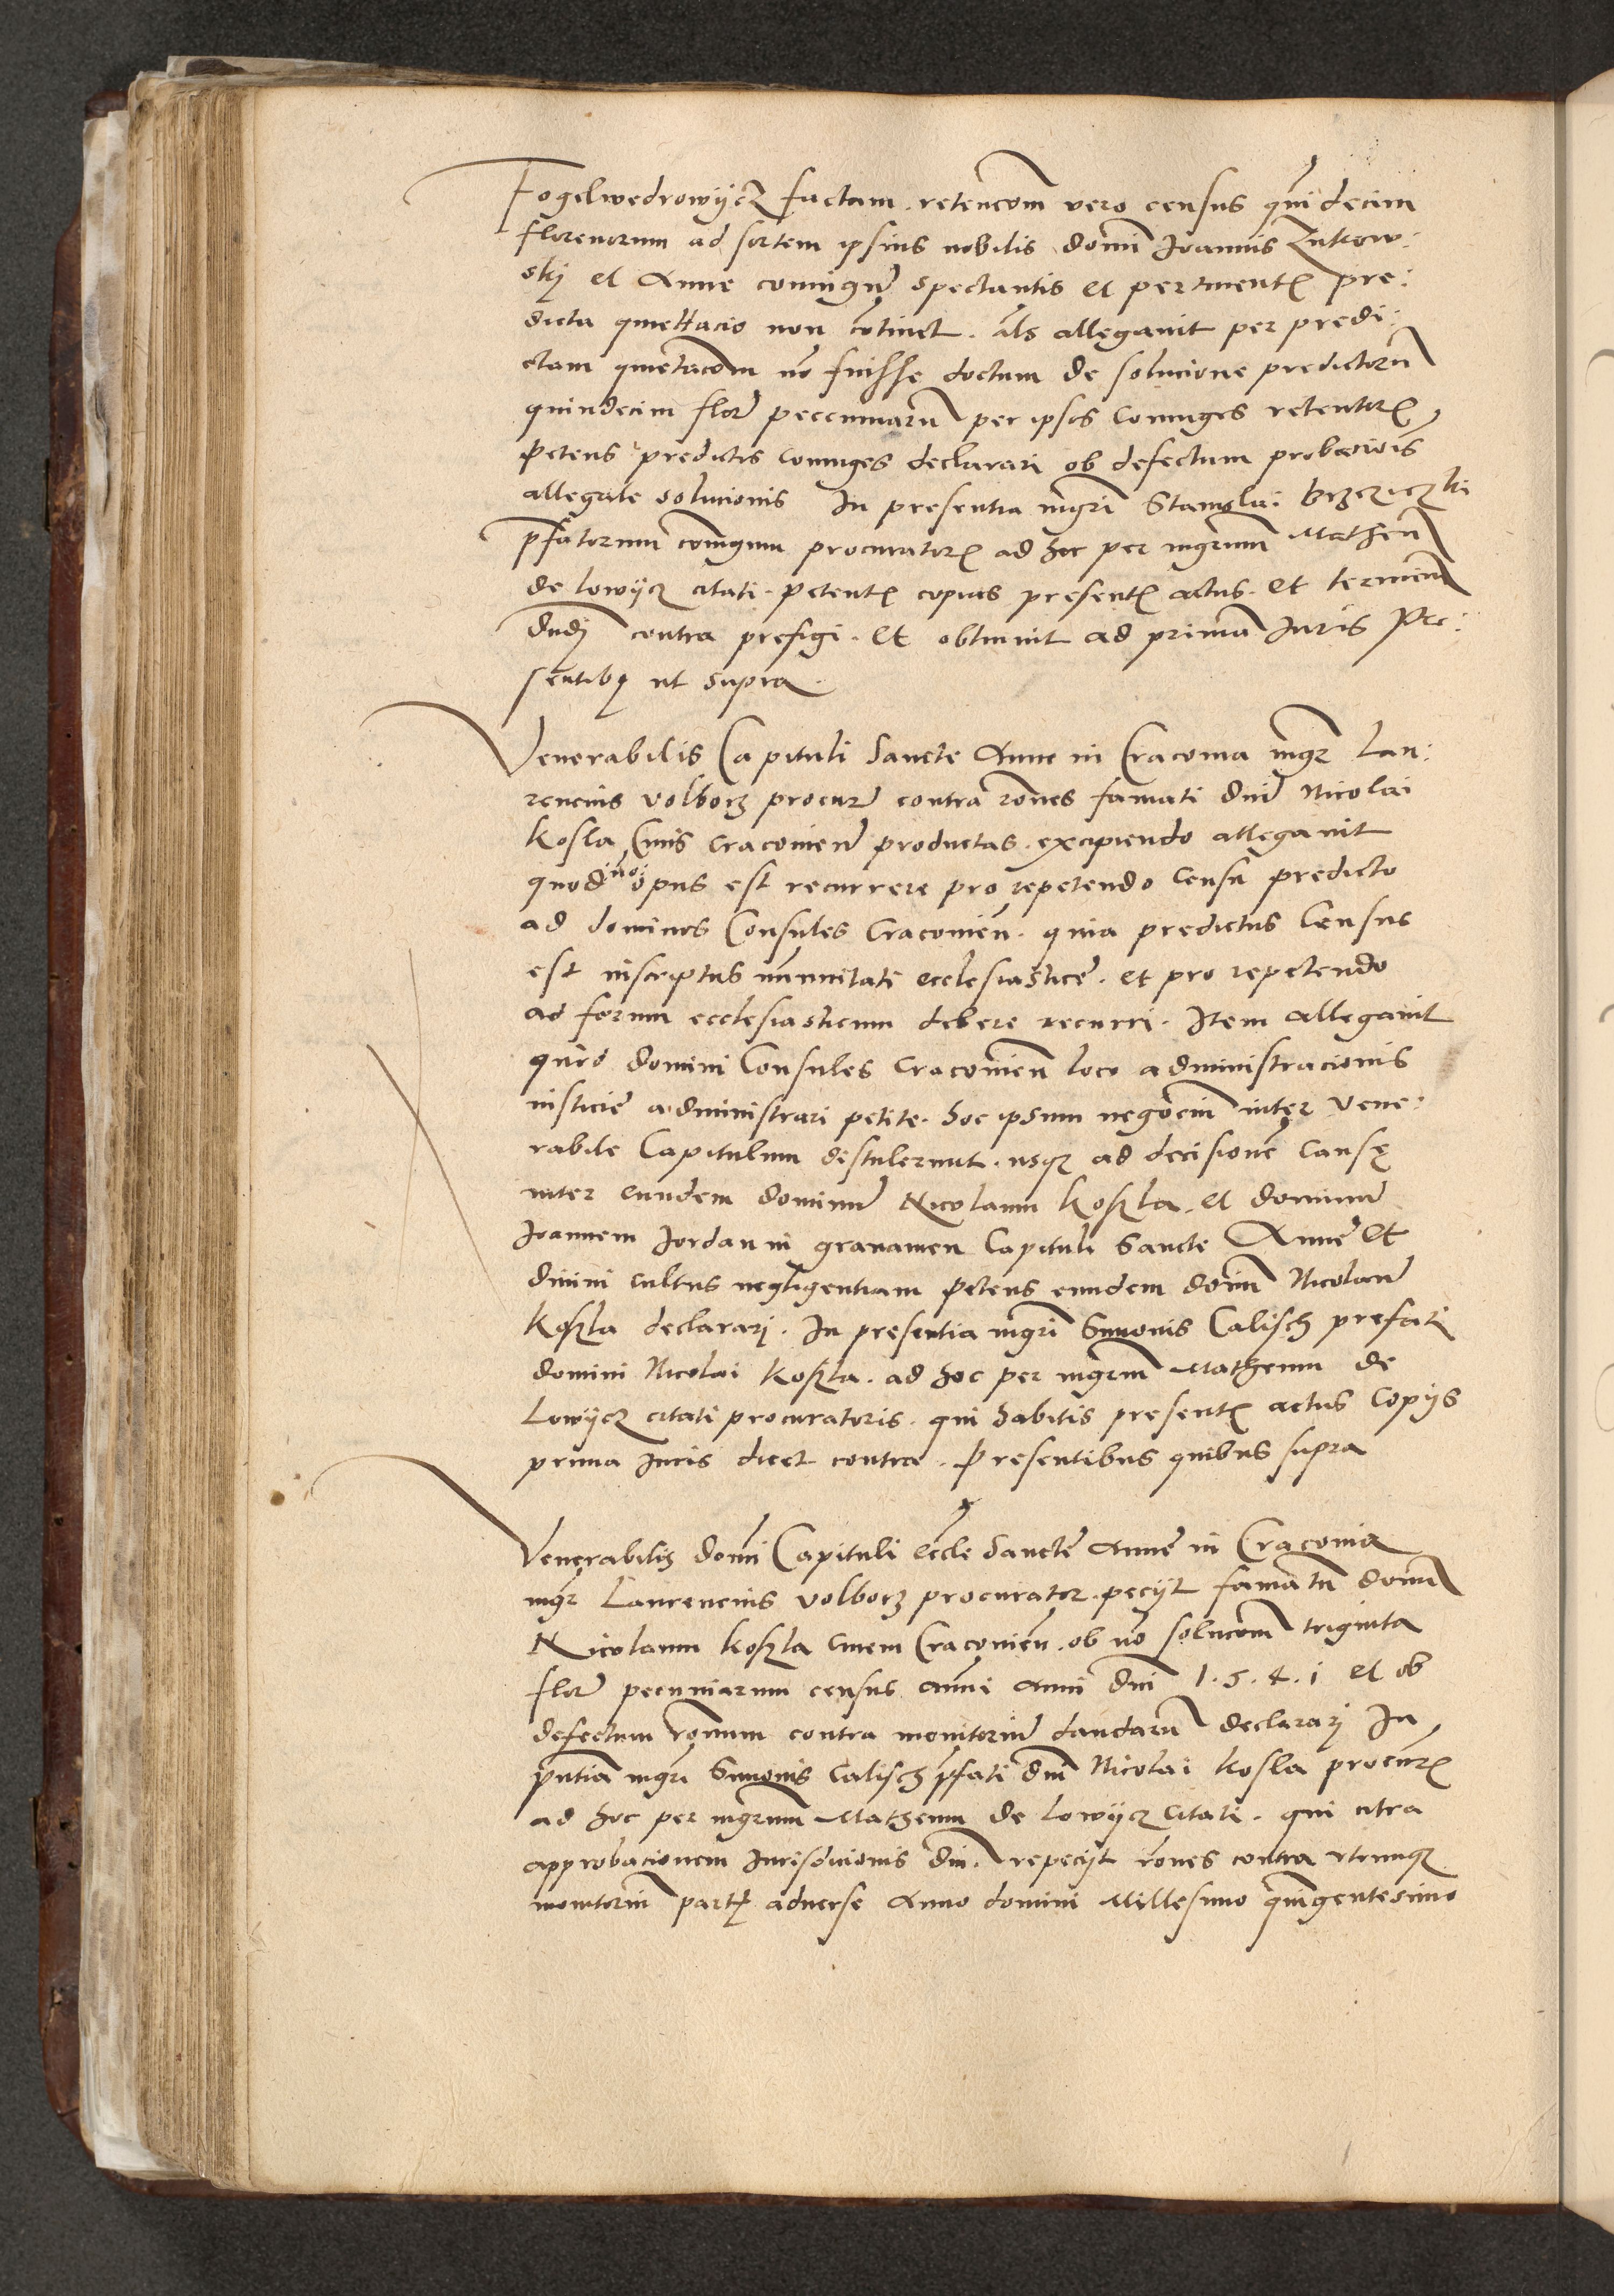 Fogelwedrowÿcz factam. retencōm vero census qũidecim
florenorum ad sortem ipsius nobilis domĩ Joannis Zukow:
skÿ et Anne coniugũ spectantis et pertinentꝭ pre:
dicta quiettacio non cōtinet. als̃ allegauit per predi:
ctam quietacōm nō fuisse doctum de solucione predictorũ
quindecim flor̃ peccuniarũ per ipsos Coniuges retentorꝭ
Petens predictos Coniuges declarari ob defectum probaciōis
allegate solucionis In presentia mgr̃i Stanislai Brzeziczki
p̃fatorum coniugum procuratorꝭ ad hoc per mgr̃um Matheũ
de lowÿcz citati. petentꝭ copias presentꝭ actus. et terminũ
dndj contra prefigi. et obtinuit ad primã Juris Pre:
sentibꝫ ut supra.
Venerabilis Capituli Sancte Anne in Cracouia mgr̃ Lau:
rencius volborz procur̃ contra rōnes famati dnĩ Nicolai
Kosla Ciuis Cracouien̄ productas. excipiendo allegauit
quod nō opus est recurrere pro repetendo Censu predicto
ad dominos Consules Cracouien̄. quia predictus Census
est inscriptus immunitati ecclesiastice. et pro repetendo
ad forum ecclesiasticum debere recurri. Item allegauit
quod domini Consules Cracouien̄ loco administracionis
iusticie administrari petite. hoc ipsum negociũ inter Vene:
rabile Capitulum distulerunt. usqꝫ ad decisionē Causę
inter eundem dominũ Nicolaum Koszla. et dominũ
Joannem Jordan in grauamen Capituli Sancte Anne et
diuini cultus negligentiam petens eundem dom̃ Nicolaũ
Koszla declararj. In presentia mgr̃i Simonis Calisch prefati
domini Nicolai Koszla. ad hoc per mgr̃m Matheum de
Lowÿcz citati procuratoris. qui habitis presentꝭ actus Copÿs
prima Juris dicet contra. Presentibus quibus supra
Venerabilis domĩ Capituli eccl̃e Sancte Anne in Cracouia
mgr̃ Laurencius volborz procurator. pecÿt famatũ domĩ
Nicolaum Koszla Ciuem Cracouien̄. ob nō solucōm triginta
flor̃ pecuniarum census annui Anni dnĩ 1.5.4.1 et ob
defectum rōnum contra monitoriũ dandarũ declararj In
pñtia mgr̃i Simonis Calisch p̃fati dnĩ Nicolai Kosla procur̃ꝭ
ad hoc per mgr̃um Matheum de Lowÿcz Citati. qui citra
approbacionem Jurisdicionis dnĩ. repecÿt rōnes contra vtrumqꝫ
monitoriũ partꝭ aduerse Anno domini Millesimo quĩgentesimo